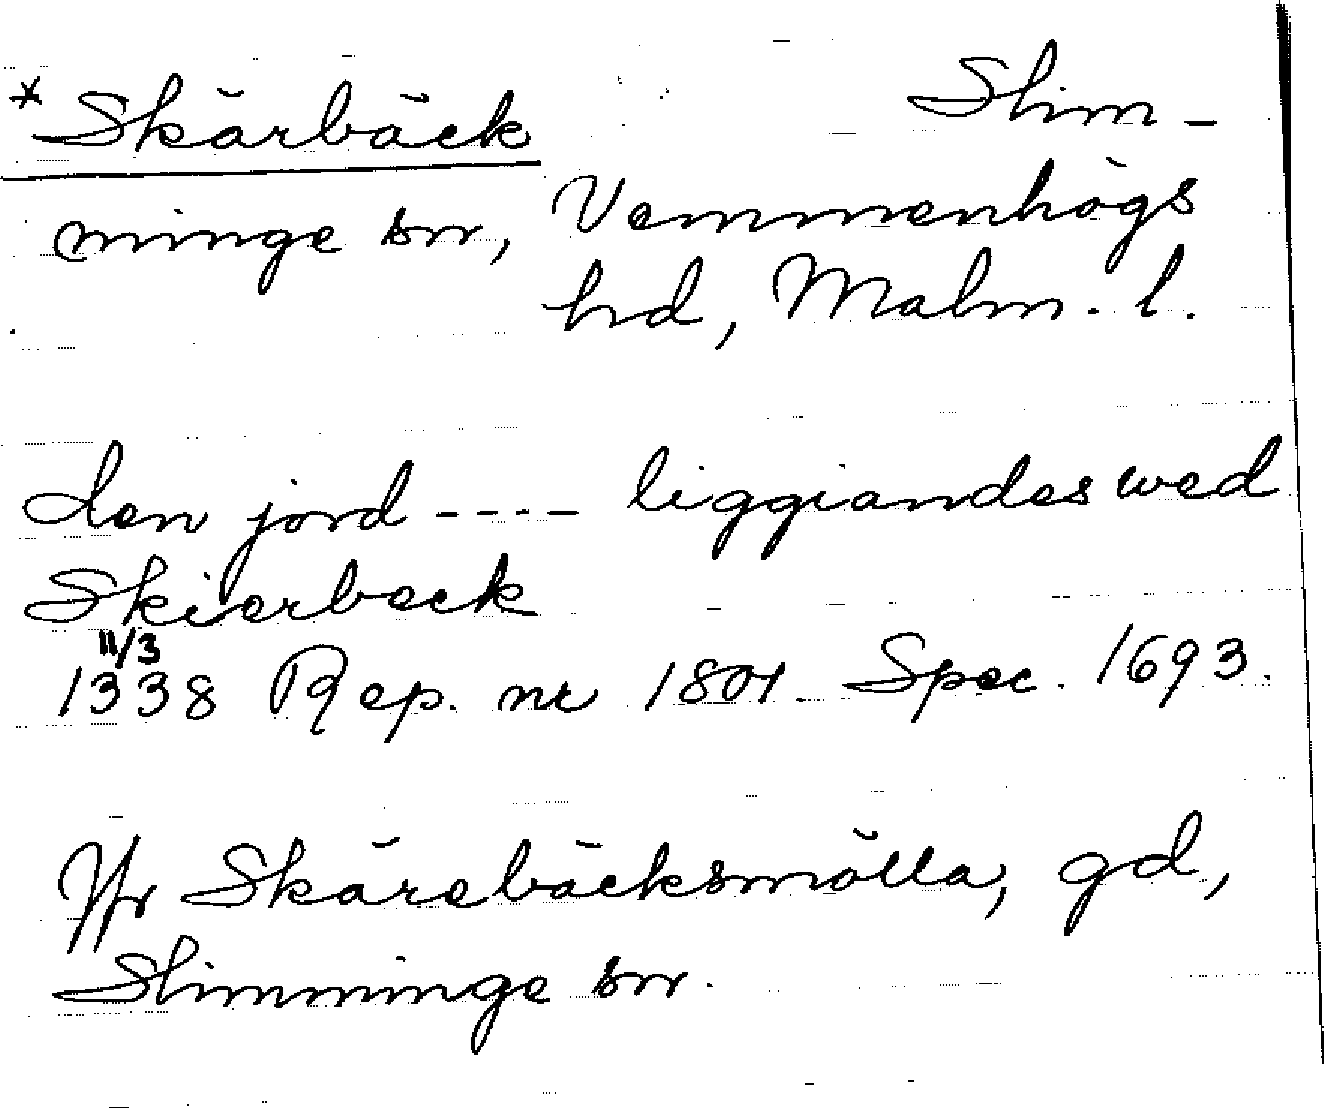 *Skärbäck Slim-
minge sn, Vemmenhögs
hd, Malm. l.
den jord ---- liggiandes wed
Skierbeck
11/3
1338 Rep. nr 1801 Spec. 1693.
Jfr Skärebäcksmölla, gd,
Slimminge sn.